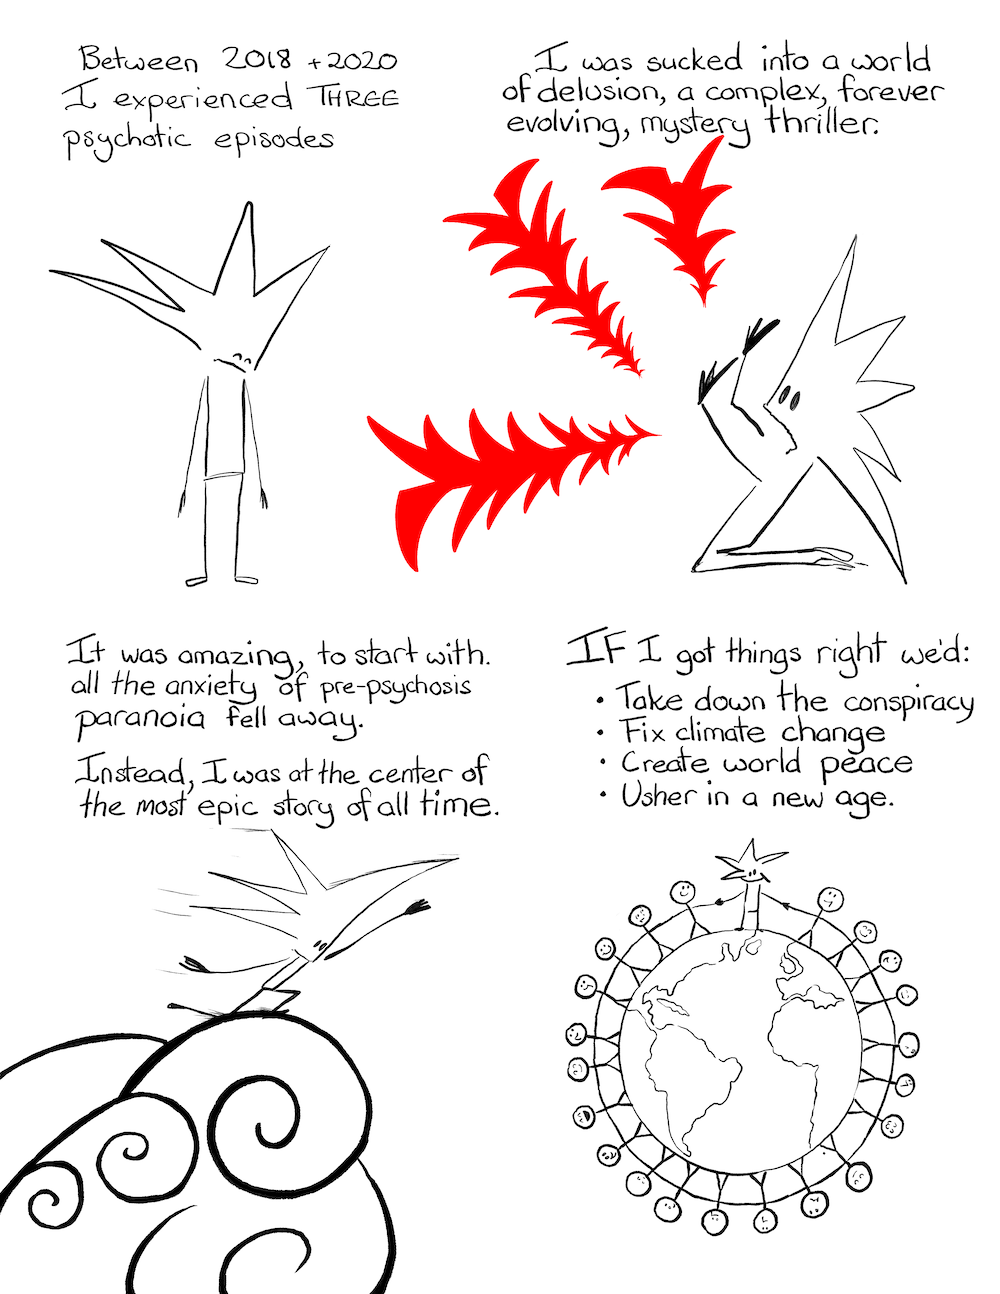 Between 2018 + 2020
I experienced THREE
psychotic episodes
I was sucked into a world
of delusion, a complex, forever
evolving, mystery thriller.
It was amazing, to start with.
all the anxiety of pre-psychosis
paranoia fell away.
Instead, I was at the center of
the most epic story of all time.
IF I got things right we'd:
• Take down the conspiracy
• Fix climate change
• Create world peace
• Usher in a new age.